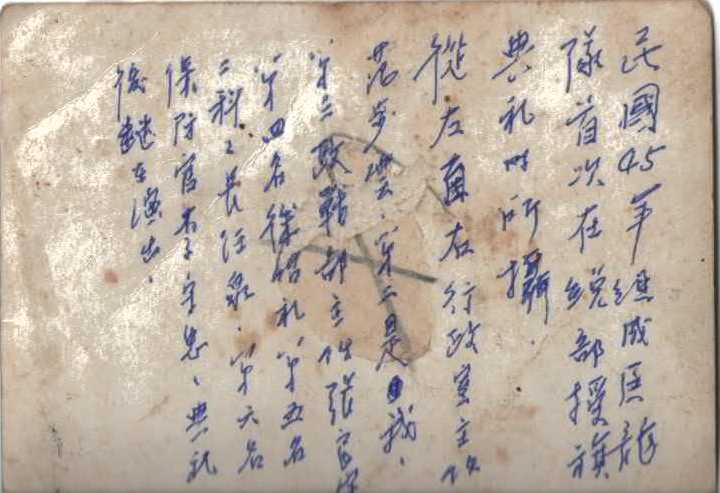 民國45年組成匡龍
隊首次在總部授旗
典禮時所攝.
從左面右行政室主
范步雲、第二是我、
第三政戰部主任張
第四名徐昭礼第五名
二科之長汪泉.第六名
保防官李守忠、典礼
後繼在演出.